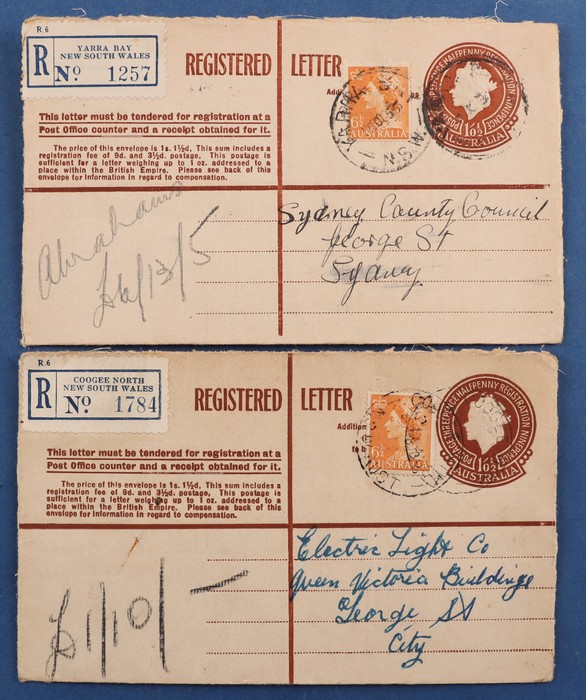 R.6
R YARRA BAY
NEW SOUTH WALES
No 1257
REGISTERED LETTER
6½
AUSTRALIA
POSTAGE THREEPENCE HALFPENNY REGISTRATION NINEPENCE
1/0½
AUSTRALIA
N.S.W.
This letter must be tendered for registration at a
Post Office counter and a receipt obtained for it.
The price of this envelope is 1s. 1½d. This sum includes a
registration fee of 9d. and 3½d. postage. This postage is
sufficient for a letter weighing up to 1 oz. addressed to a
place within the British Empire. Please see back of this
envelope for information in regard to compensation.
Abrahams
£6/13/5
Sydney County Council
George St
Sydney
R.6
R COOGEE NORTH
NEW SOUTH WALES
No 1784
REGISTERED LETTER
Addition
6½
AUSTRALIA
POSTAGE THREEPENCE HALFPENNY REGISTRATION NINEPENCE
1/0½
AUSTRALIA
This letter must be tendered for registration at a
Post Office counter and a receipt obtained for it.
The price of this envelope is 1s. 1½d. This sum includes a
registration fee of 9d. and 3½d. postage. This postage is
sufficient for a letter weighing up to 1 oz. addressed to a
place within the British Empire. Please see back of this
envelope for information in regard to compensation.
£1/10/-
Electric Light Co
Queen Victoria Buildings
George St
City